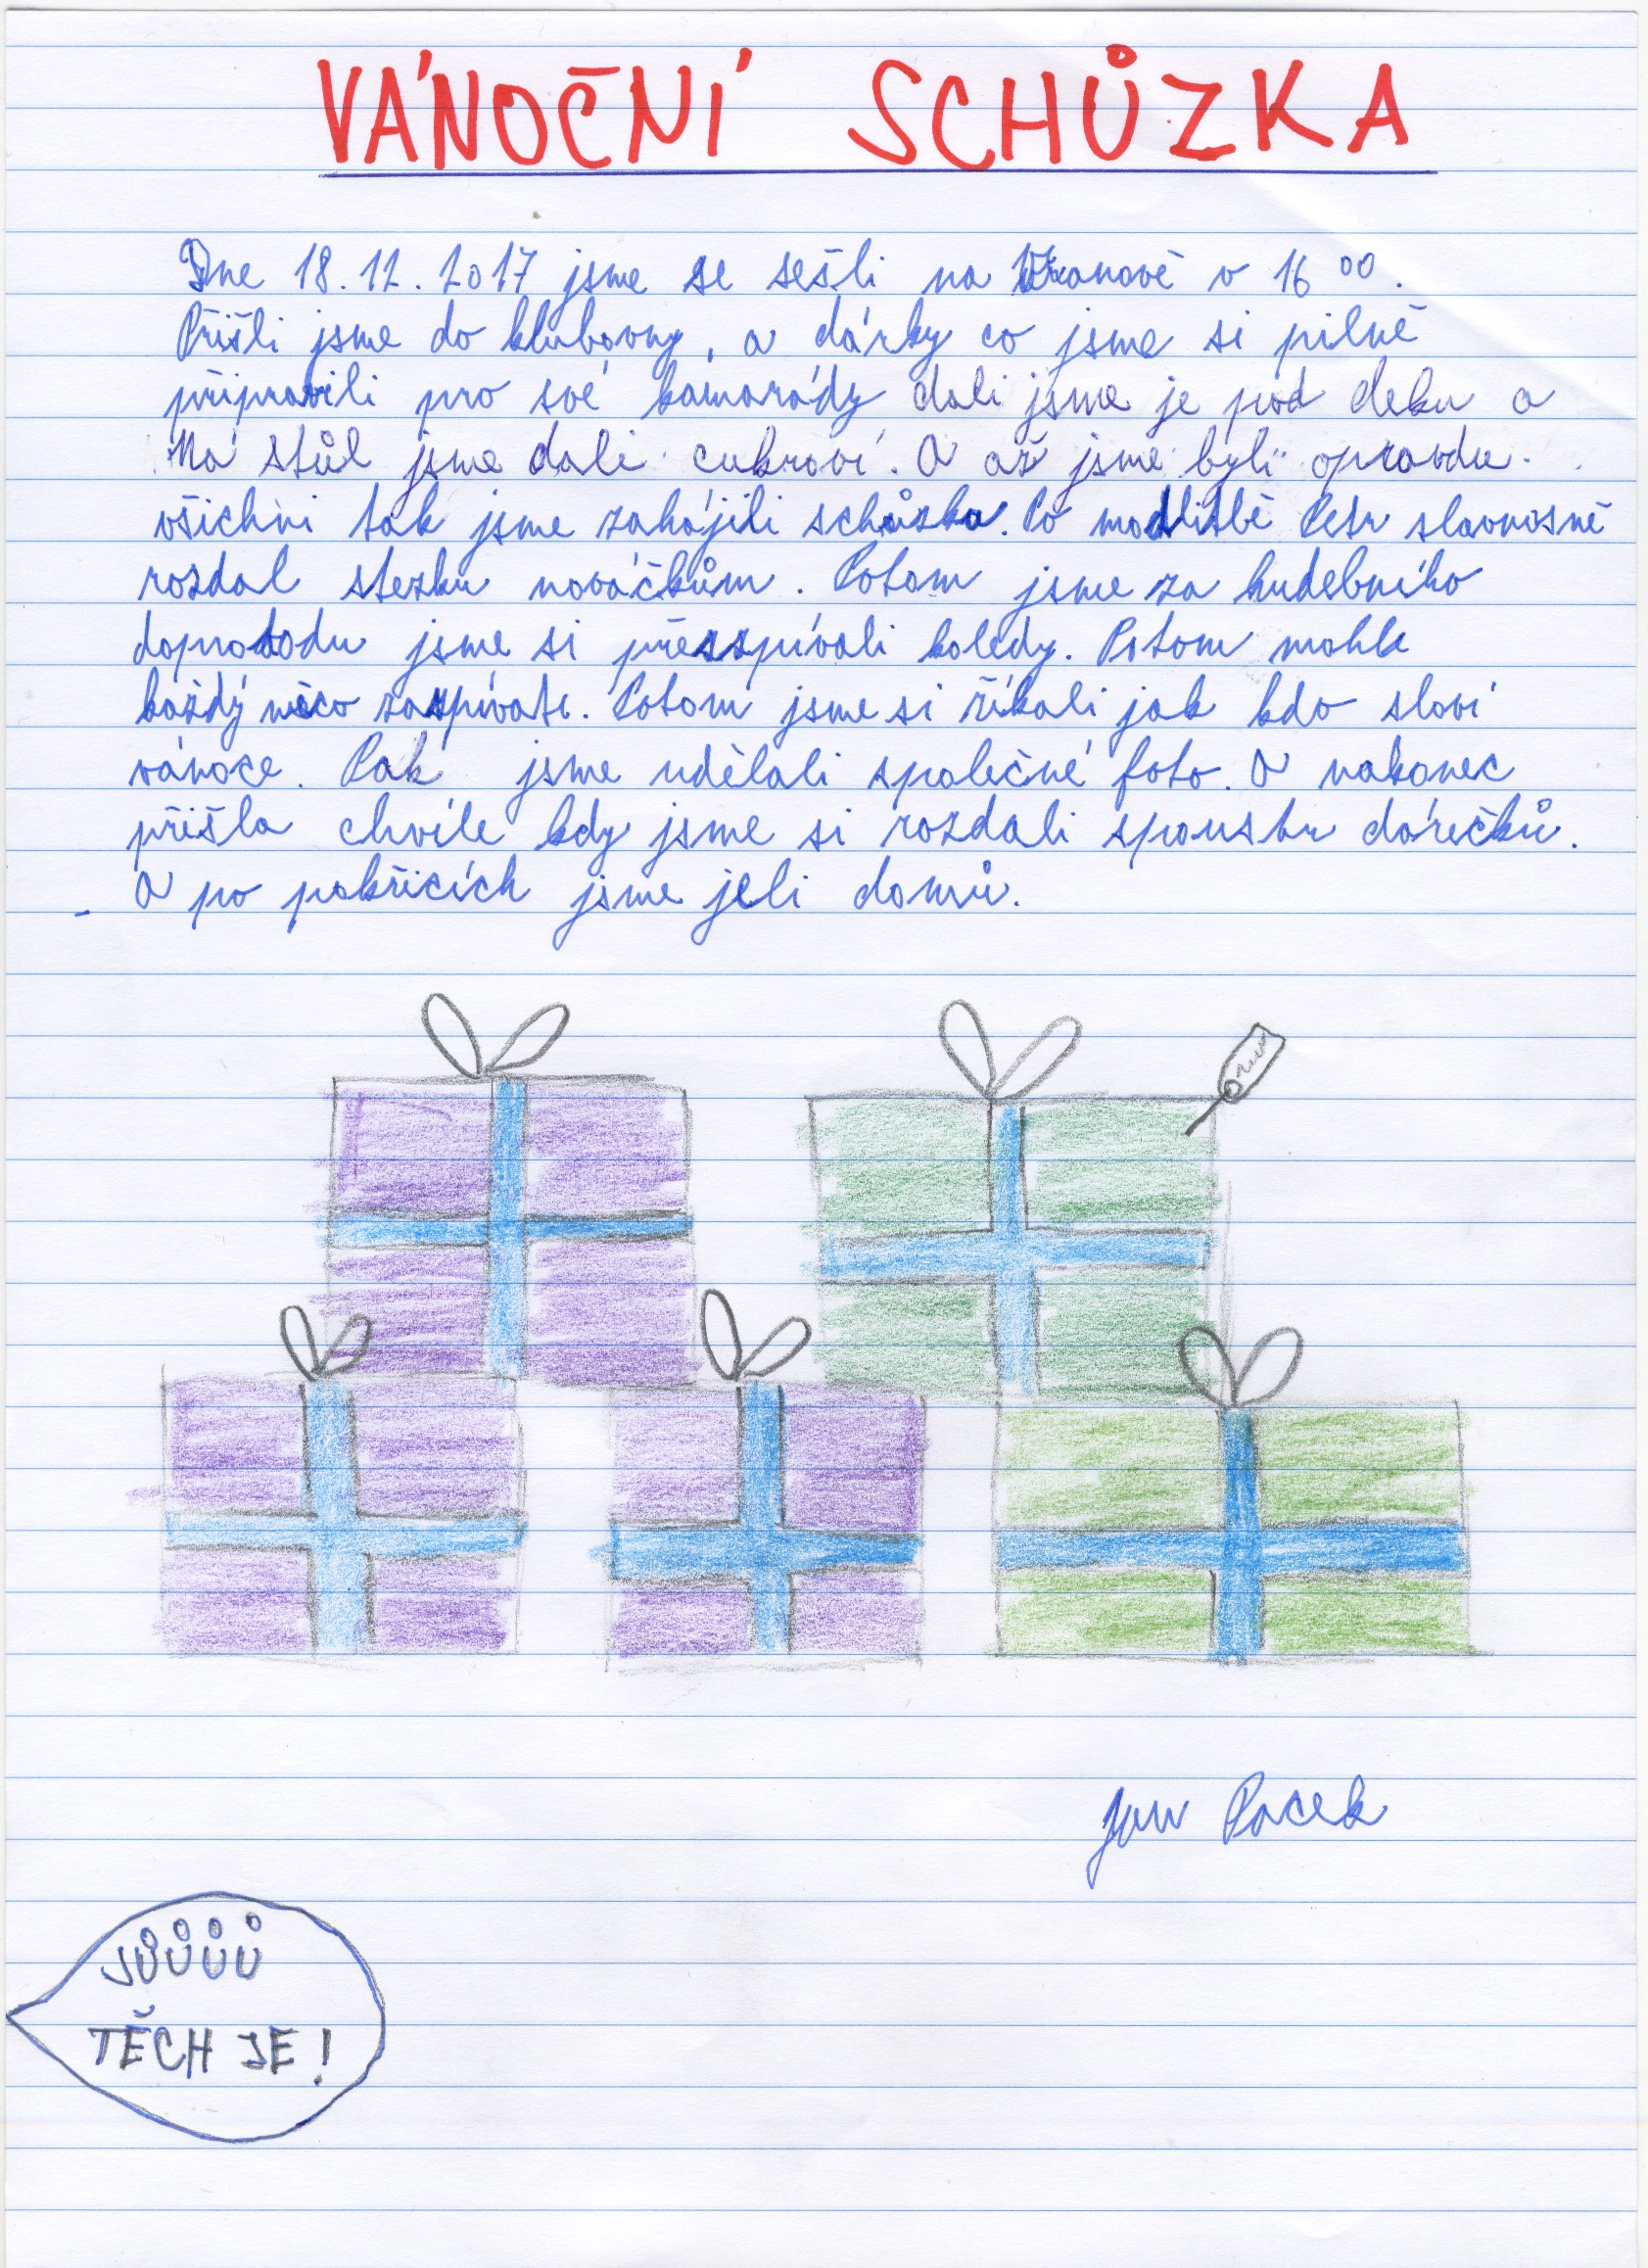 VÁNOČNÍ SCHŮZKA
Dne 18.12.2017 jsme se sešli na Vranově v 16 00.
Přišli jsme do klubovny, a dárky co jsme si pilně
připravili pro své kamarády dali jsme je pod deku a
Na stůl jsme dali cukroví. A až jsme byli opravdu
všichni tak jsme zahájili schůzku. Po modlitbě Petr slavnosně
rozdal stezku nováčkům. Potom jsme za hudebního
doprovodu jsme si přezspívali koledy. Potom mohl
každý něco zazpívati. Potom jsme si říkali jak kdo slaví
vánoce. Pak jsme udělali společné foto. A nakonec
přišla chvíle kdy jsme si rozdali spoustu dárečků.
A po pokřicích jsme jeli domů.
Jan Pacek
JŮŮŮŮ
TĚCH JE!